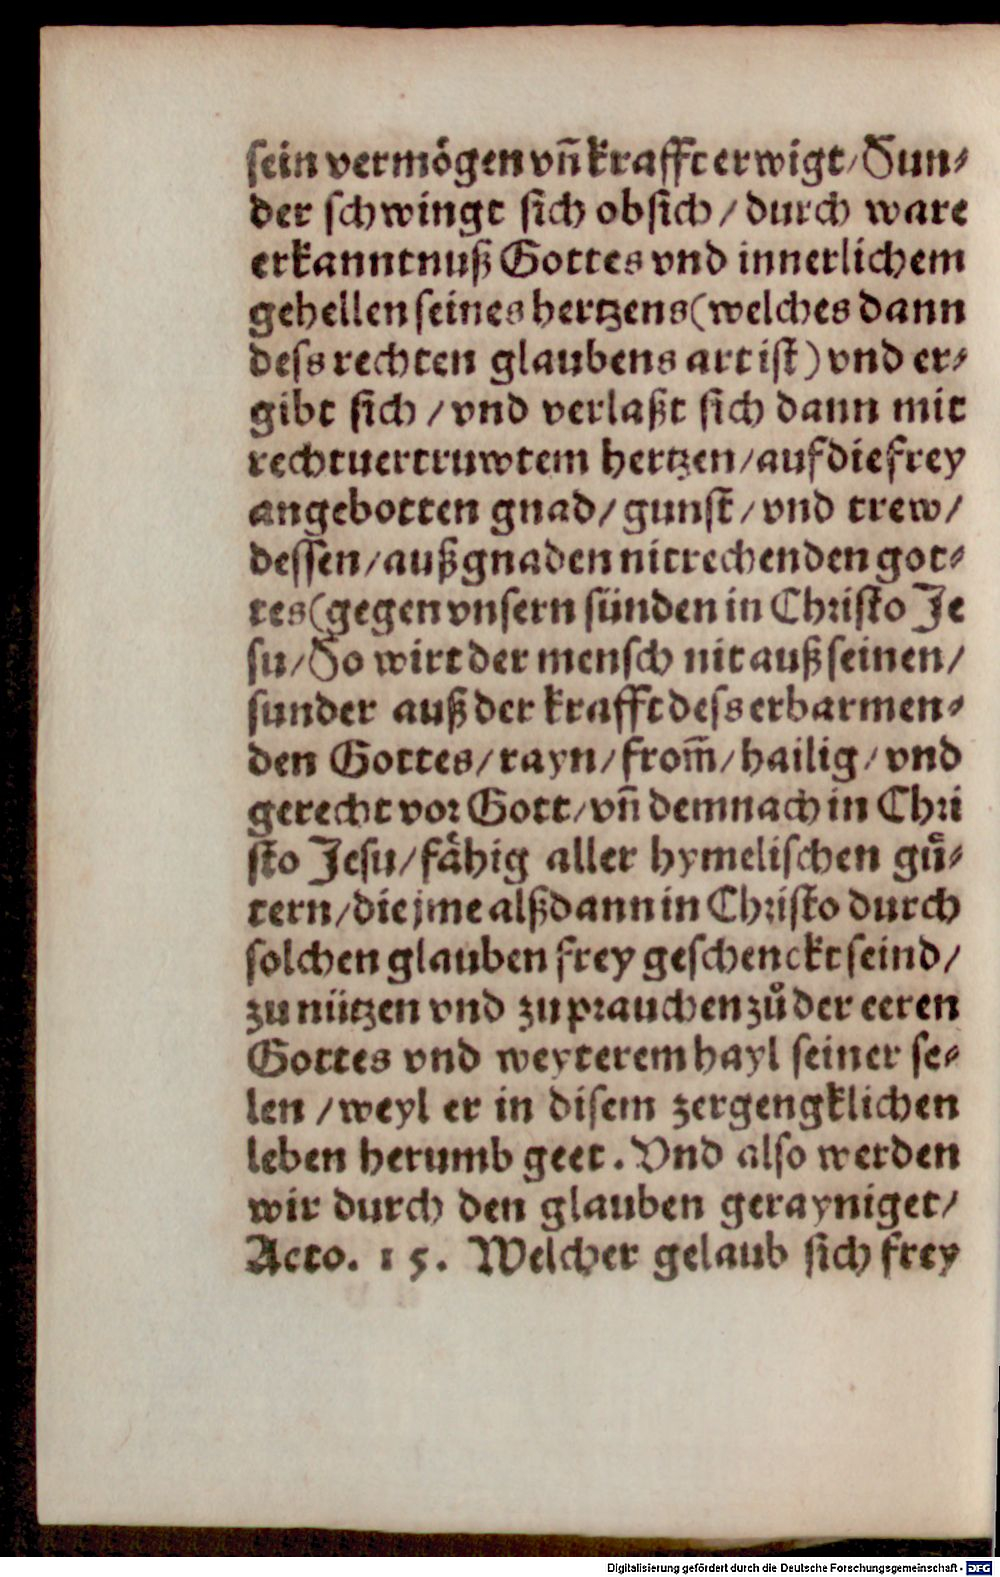 sein vermögen vn̄ krafft erwigt/ Sun⸗
der schwingt sich obsich / durch ware
erkanntnuß Gottes vnd innerlichem
gehellen seines hertzens (welches dann
dess rechten glaubens art ist) vnd er⸗
gibt sich / vnd verlaßt sich dann mit
rechtuertruwtem hertzen/ auf die frey
angebotten gnad/ gunst/ vnd trew/
dessen/ auß gnaden nit rechenden got⸗
tes (gegen vnsern sünden in Christo Je
su/ So wirt der mensch nit auß seinen/
sunder auß der krafft dess erbarmen⸗
den Gottes/ rayn/ from̄/ hailig/ vnd
gerecht vor Gott/ vn̄ demnach in Chri
sto Jesu/ fähig aller hymelischen guͤ⸗
tern/ die jme alßdann in Christo durch
solchen glauben frey geschenckt seind/
zu nützen vnd zu prauchen zů der eeren
Gottes vnd weyterem hayl seiner se⸗
len / weyl er in disem zergengklichen
leben herumb geet. Vnd also werden
wir durch den glauben gerayniget/
Acto. 15. Welcher gelaub sich frey
Digitalisierung gefördert durch die Deutsche Forschungsgemeinschaft - DFG